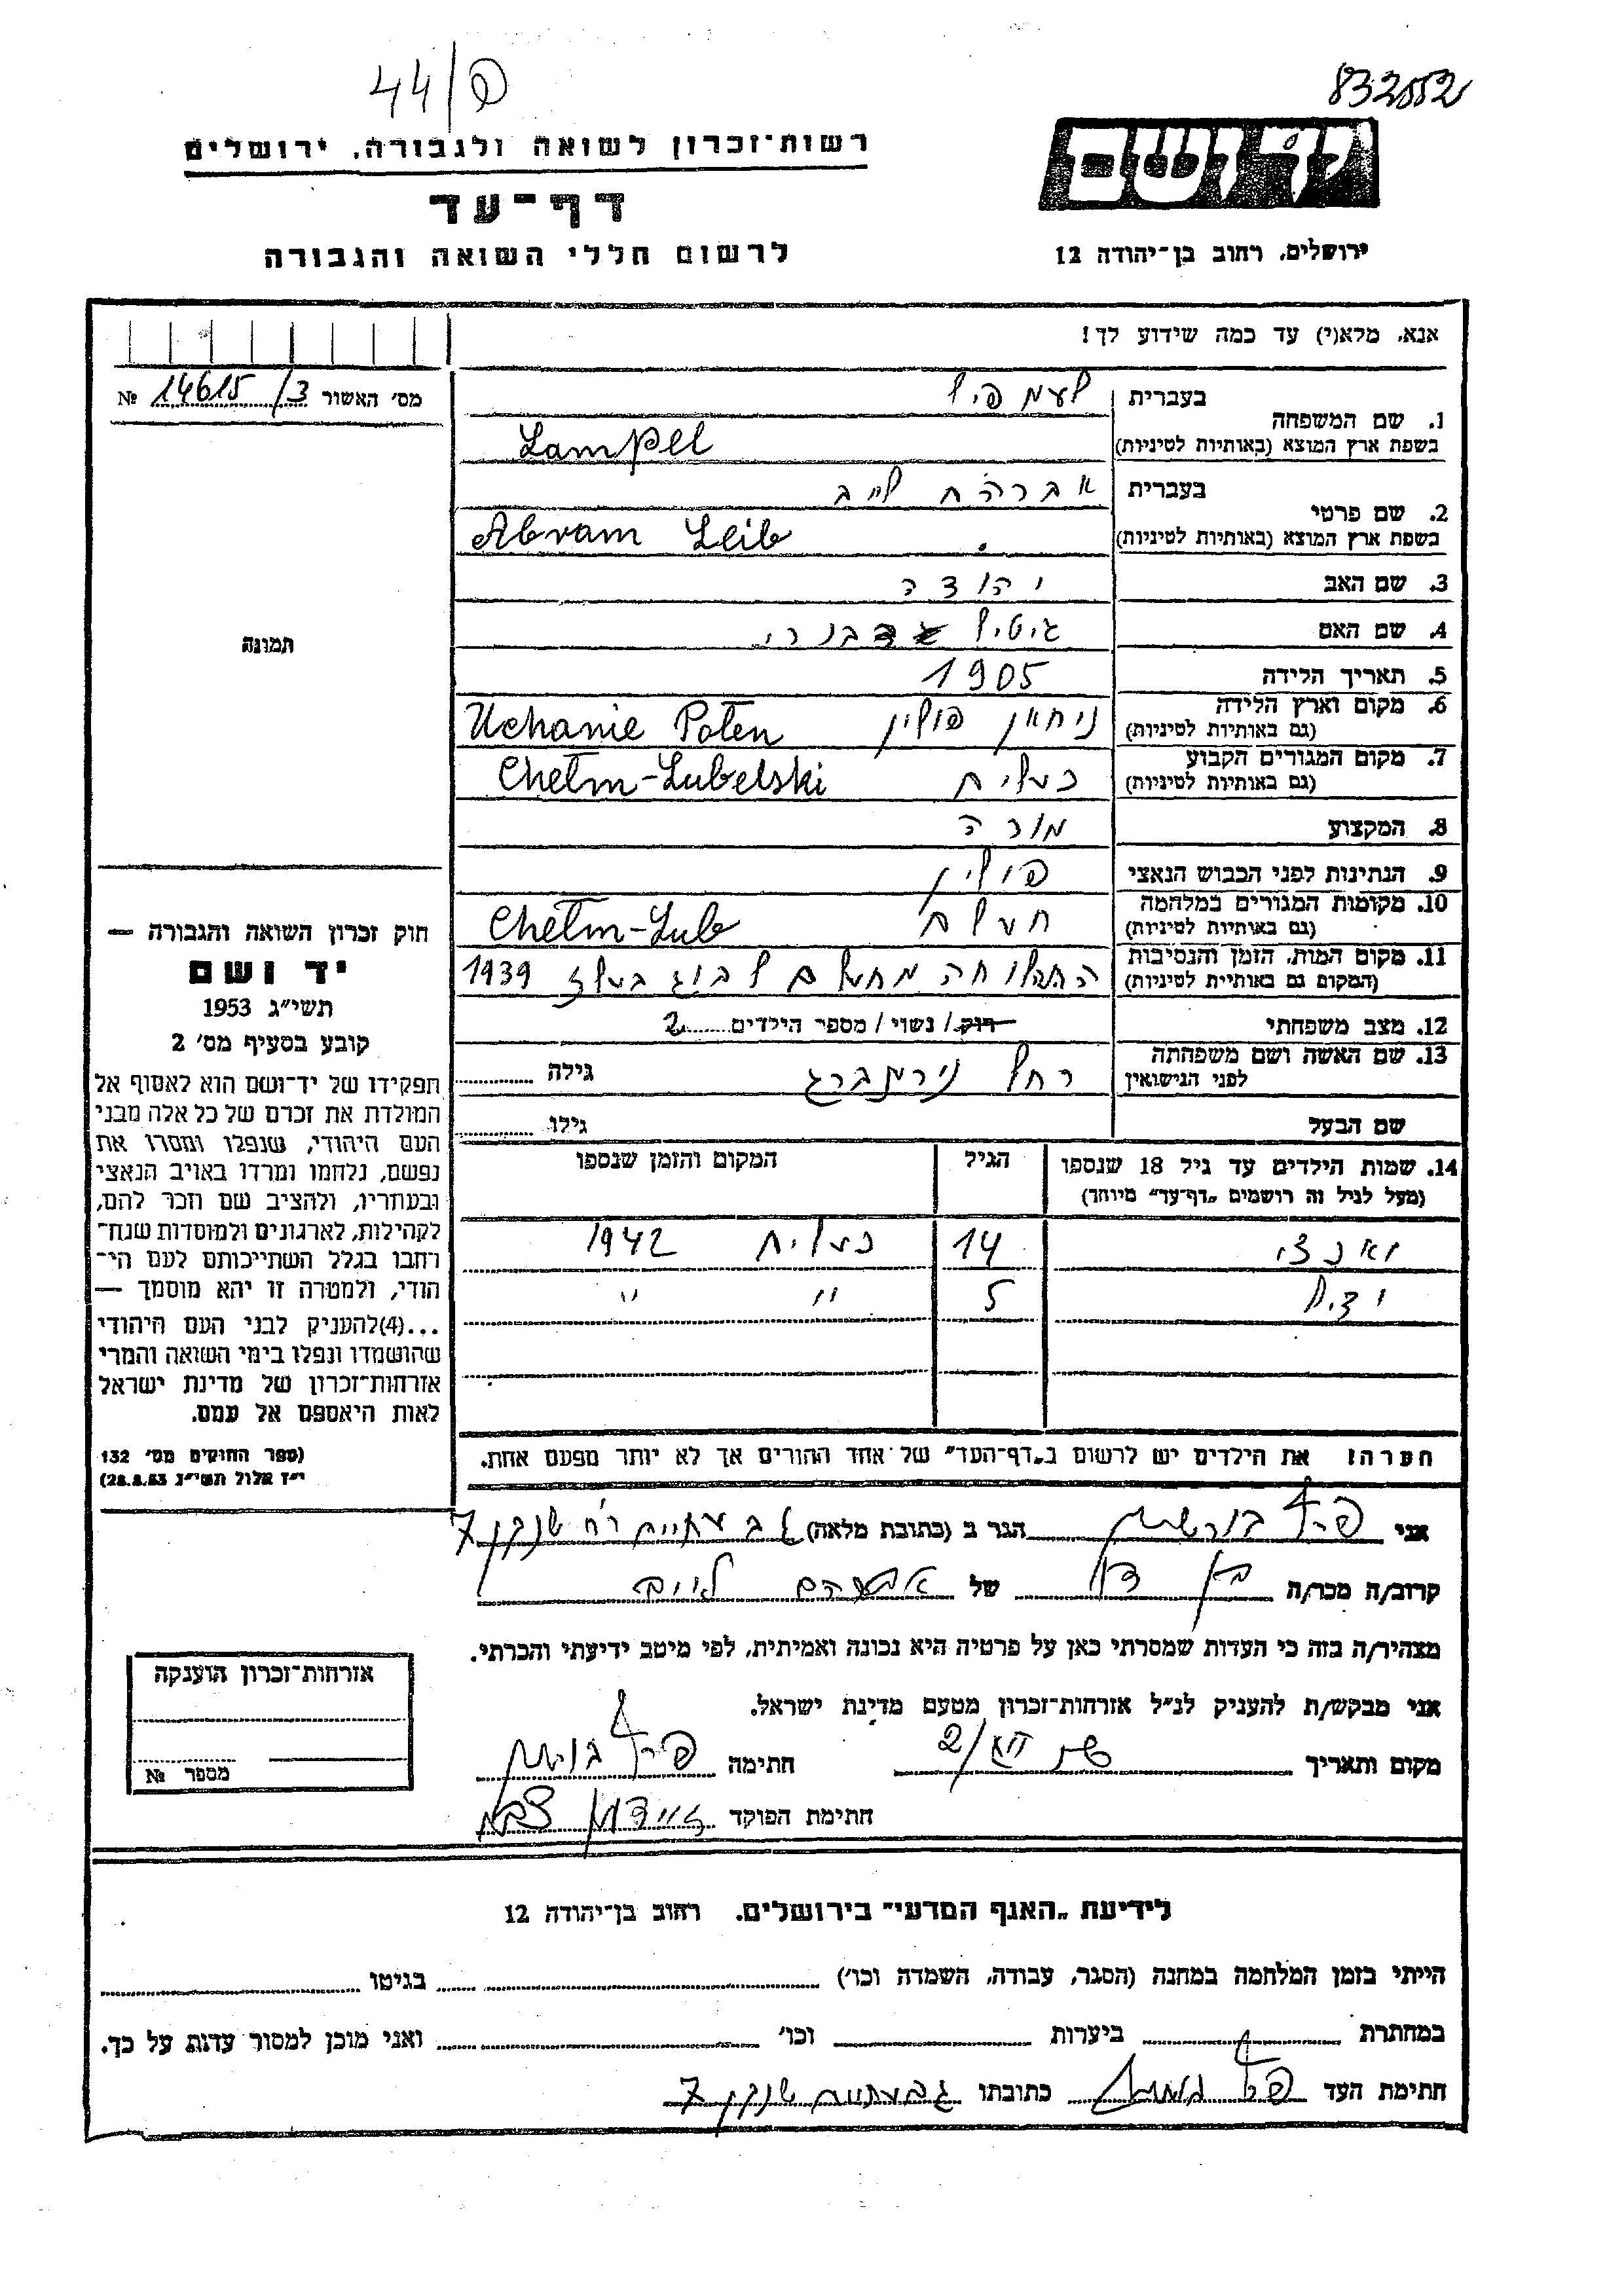 44/פ
832552
רשות־זכרון לשואה ולגבורה, ירושלים
יד ושם
דף־עד
לרשום חללי השואה והגבורה
ירושלים, רחוב בן־יהודה 12
אנא, מלא(י) עד כמה שידוע לך!
מס׳ האשור 14615/3 №
1. שם המשפחה בעברית לעמפיל
בשפת ארץ המוצא (באותיות לטיניות) Lampel
2. שם פרטי בעברית אברהם לייב
בשפת ארץ המוצא (באותיות לטיניות) Abram Leib
3. שם האב יהודה
4. שם האם גיטיל
תמונה
5. תאריך הלידה 1905
6. מקום וארץ הלידה פולין Uchanie Polen
(גם באותיות לטיניות)
7. מקום המגורים הקבוע Chełm-Lubelski
(גם באותיות לטיניות)
8. המקצוע מורה
9. הנתינות לפני הכבוש הנאצי פולין
10. מקומות המגורים במלחמה חעלם Chełm-Lub
(גם באותיות לטיניות)
11. מקום המות, הזמן והנסיבות מחעלם לבוג 1939
(המקום גם באותיית לטיניות)
12. מצב משפחתי רוק/ נשוי/ מספר הילדים 2
13. שם האשה ושם משפחתה רחל נירנברג גילה
לפני הנישואין
שם הבעל גילו
14. שמות הילדים עד גיל 18 שנספו הגיל המקום והזמן שנספו
(מעל לגיל זה רושמים „דף־עד” מיוחד)
14 1942
5 " "
הערה! את הילדים יש לרשום ב„דף־העד” של אחד ההורים אך לא יותר מפעם אחת.
חוק זכרון השואה והגבורה —
יד ושם
תשי״ג 1953
קובע בסעיף מס׳ 2
תפקידו של יד־ושם הוא לאסוף אל
המולדת את זכרם של כל אלה מבני
העם היהודי, שנפלו ומסרו את
נפשם, נלחמו ומרדו באויב הנאצי
ובעוזריו, ולהציב שם וזכר להם,
לקהילות, לארגונים ולמוסדות שנח־
רחבו בגלל השתייכותם לעם הי־
הודי, ולמטרה זו יהא מוסמך —
...(4)להעניק לבני העם היהודי
שהושמדו ונפלו בימי השואה והמרי
אזרחות־זכרון של מדינת ישראל
לאות היאספם אל עמם.
(ספר החוקים מס׳ 132
י״ז אלול תשי״ג 28.8.53)
אני הגר ב (כתובת מלאה) גבעתיים רח׳ שנקין 7
קרוב/ה מכר/ה בן דוד של אברהם לייב
מצהיר/ה בזה כי העדות שמסרתי כאן על פרטיה היא נכונה ואמיתית, לפי מיטב ידיעתי והכרתי.
אני מבקש/ת להעניק לנ״ל אזרחות־זכרון מטעם מדינת ישראל.
מקום ותאריך חתימה
חתימת הפוקד
אזרחות־זכרון הוענקה
מספר №
לידיעת „האגף המדעי” בירושלים, רחוב בן־יהודה 12
הייתי בזמן המלחמה במחנה (הסגר, עבודה, השמדה וכו׳) בגיטו
במחתרת ביערות וכו׳ ואני מוכן למסור עדות על כך.
חתימת העד כתובתו גבעתיים שנקין 7